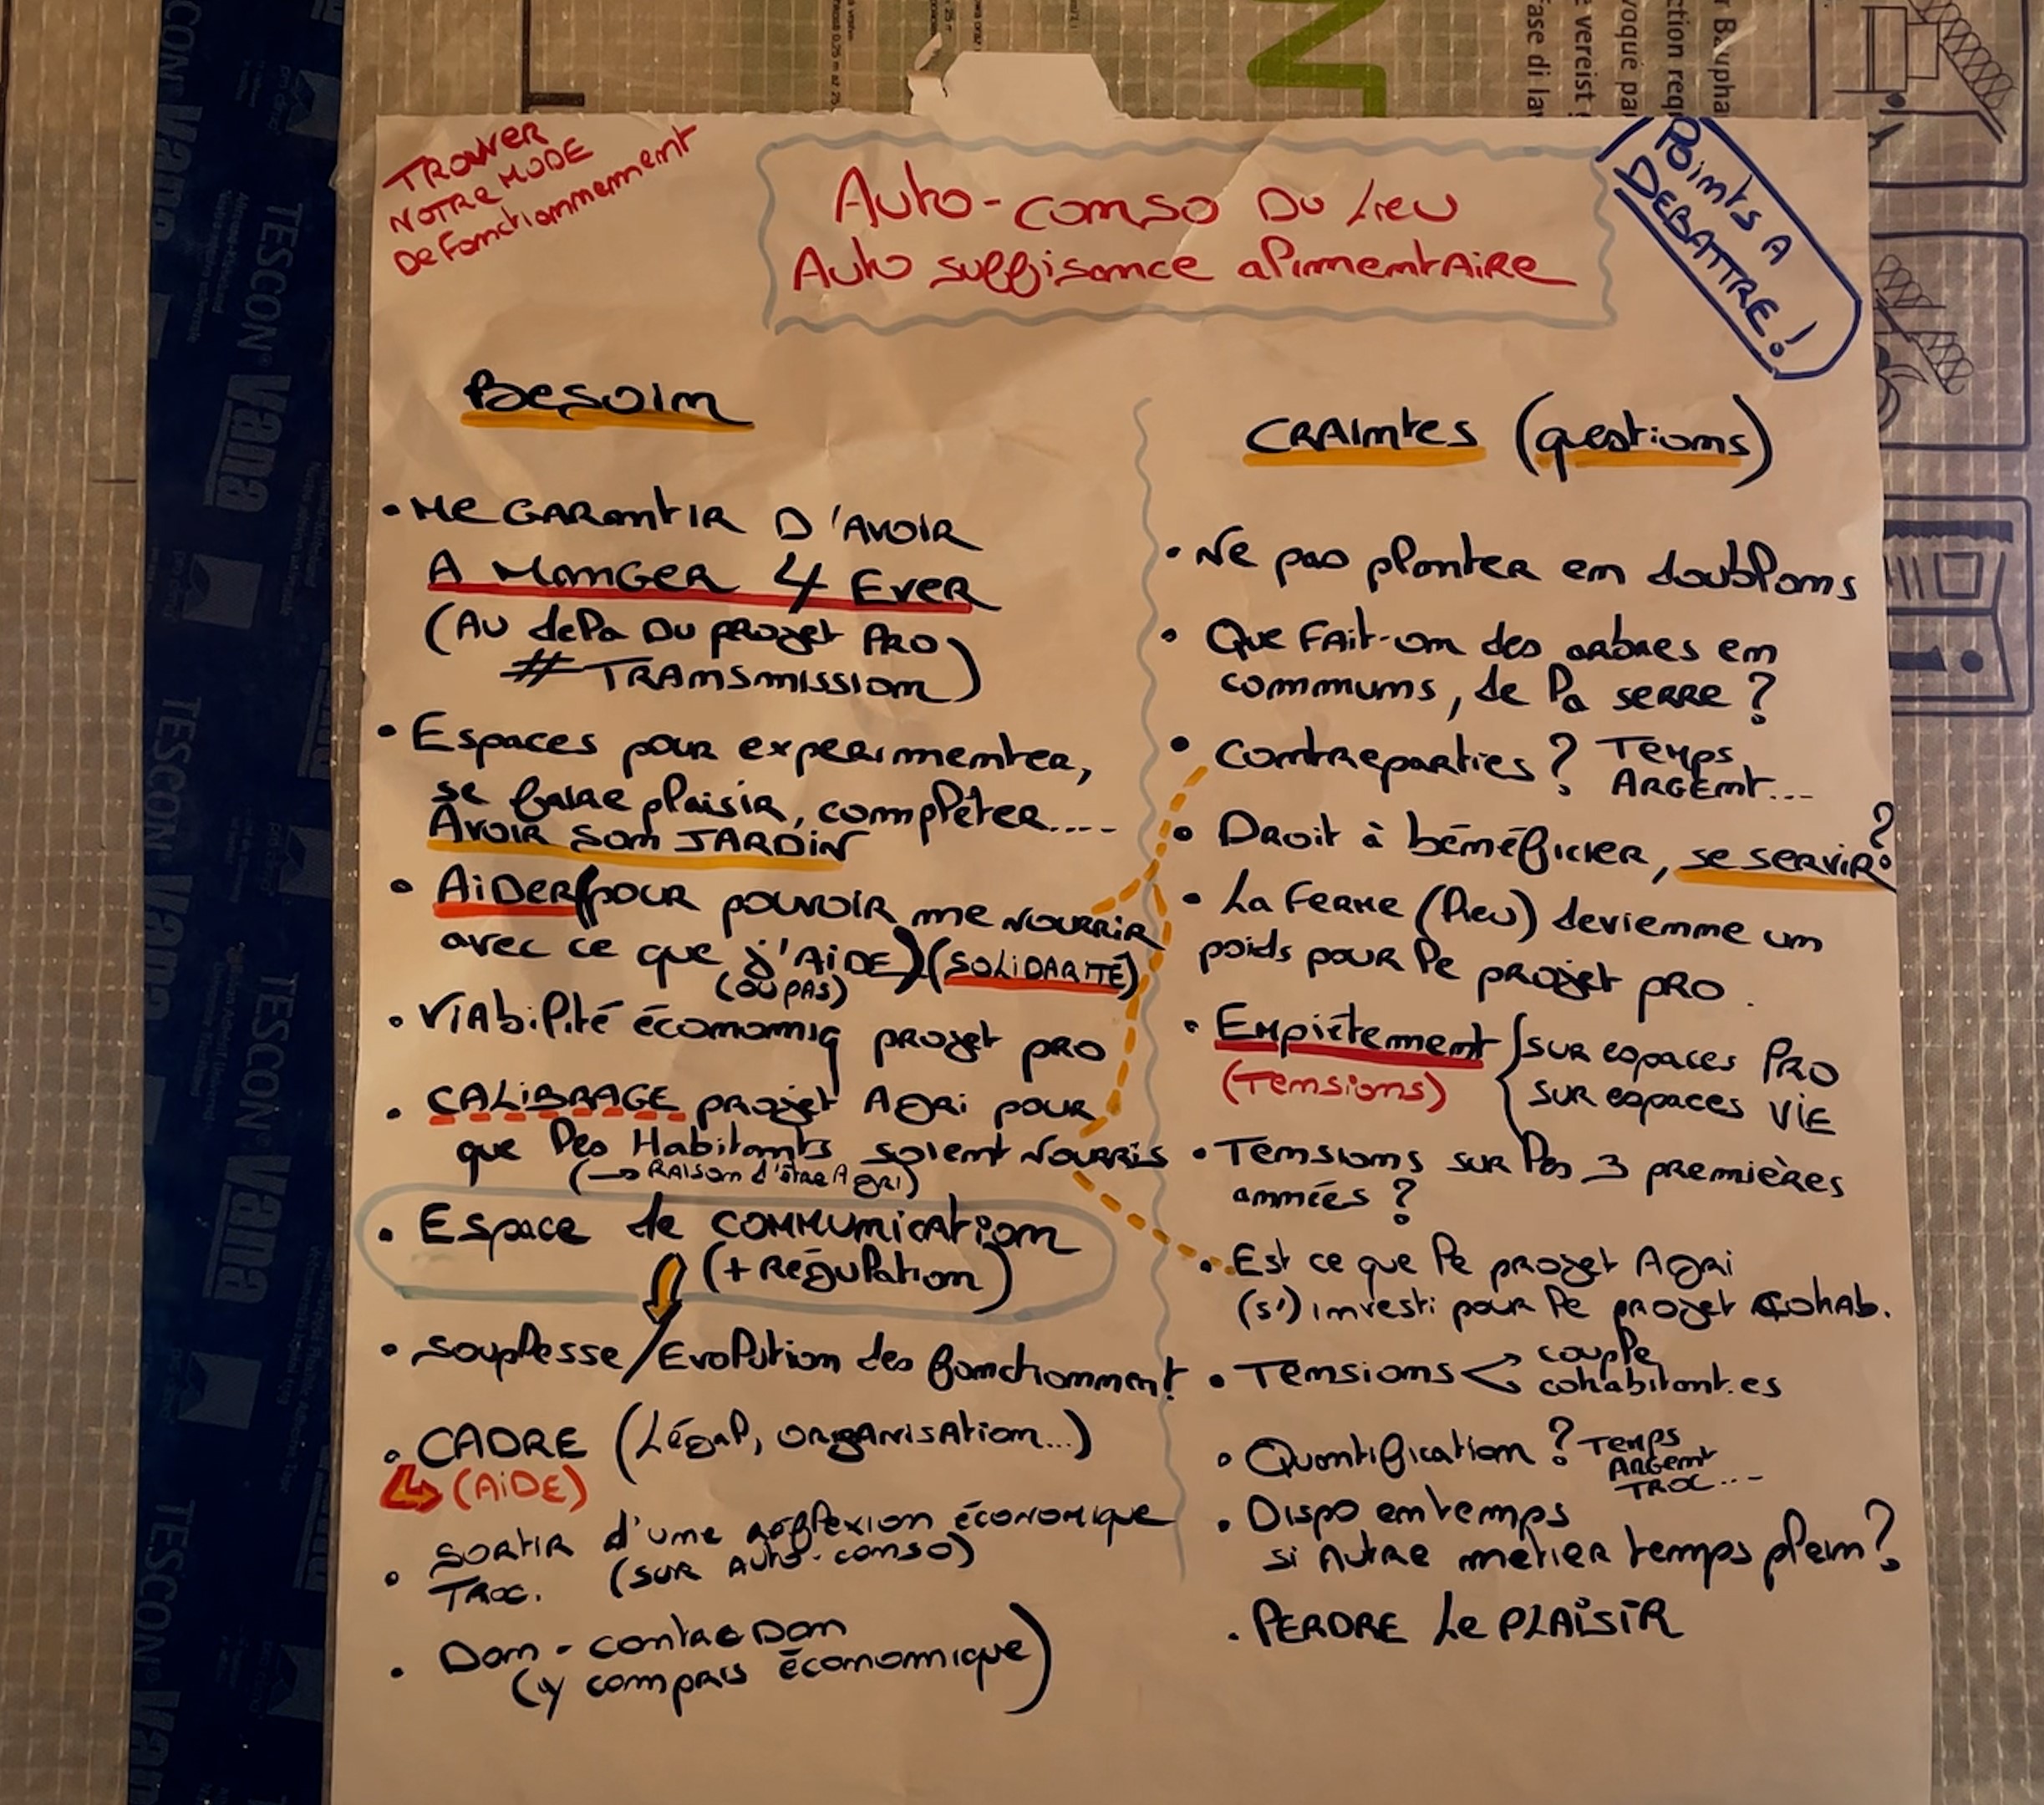 TROUVER
NOTRE MODE
De Fonctionnement
Auto-conso Du Lieu
Auto suffisance alimentaire
Points A
DEBATTRE !
Besoin
• Me GARantir D'AVOIR
A Manger 4 Ever
(Au delà Du projet PRO
# TRANSmission)
• Espaces pour experimenter,
se faire plaisir, compléter....
Avoir son JARDIN
• AiDer (pour pouvoir me nourrir
avec ce que j'AiDE) (SOLiDARiTÉ)
(ou pas)
• Viabilité économiq projet pro
• CALiBRAGE projet Agri pour
que les Habitants soient Nourris
(→ Raison d'être Agri)
• Espace de communication
(+ Régulation)
• Souplesse / Evolution des fonctionnment
• CADRE (Légal, organisation...)
(AiDE)
• SORTIR d'une réflexion économique
Troc. (sur Auto-conso)
• Don - contre Don
(y compris économique)
CRAintes (questions)
• Ne pas planter en doublons
• Que Fait-on des arbres en
communs, de la serre ?
• Contreparties ? Temps
ARGEnt...
• Droit à bénéficier, se servir ?
• La Ferme (lieu) devienne un
poids pour le projet pro.
• Empiètement { sur espaces PRO
(Tensions) sur espaces VIE
• Tensions sur les 3 premières
années ?
• Est ce que le projet Agri
(s') investi pour le projet cohab.
• Tensions < couple
cohabitant.es
• Quantification ? Temps
Argent
TROC...
• Dispo en temps
si Autre métier temps plein ?
• PERDRE Le PLAISIR
TESCON® vana
TESCON® vana
TESCON® vana
TESCON® vana